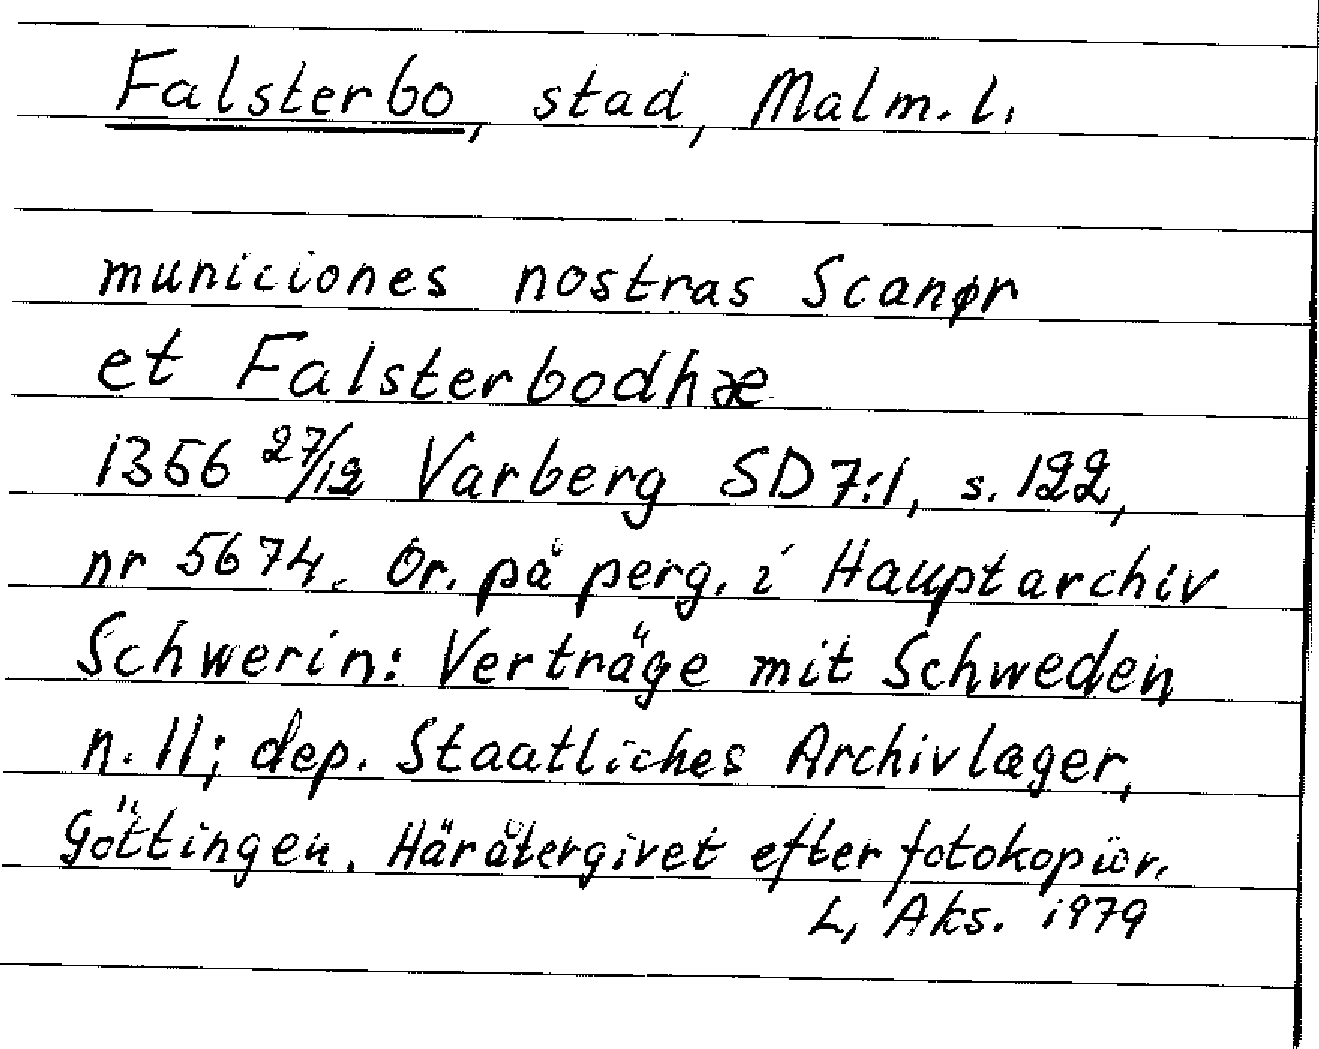 Falsterbo, stad, Malm. l.
municiones nostras Scanør
et Falsterbodhæ
1356 27/12 Varberg SD 7:1, s. 122,
nr 5674. Or. på perg. i Hauptarchiv
Schwerin: Verträge mit Schweden
n. 11; dep. Staatliches Archivlager,
Göttingen. Häråtergivet efter fotokopior.
L, Aks. 1979